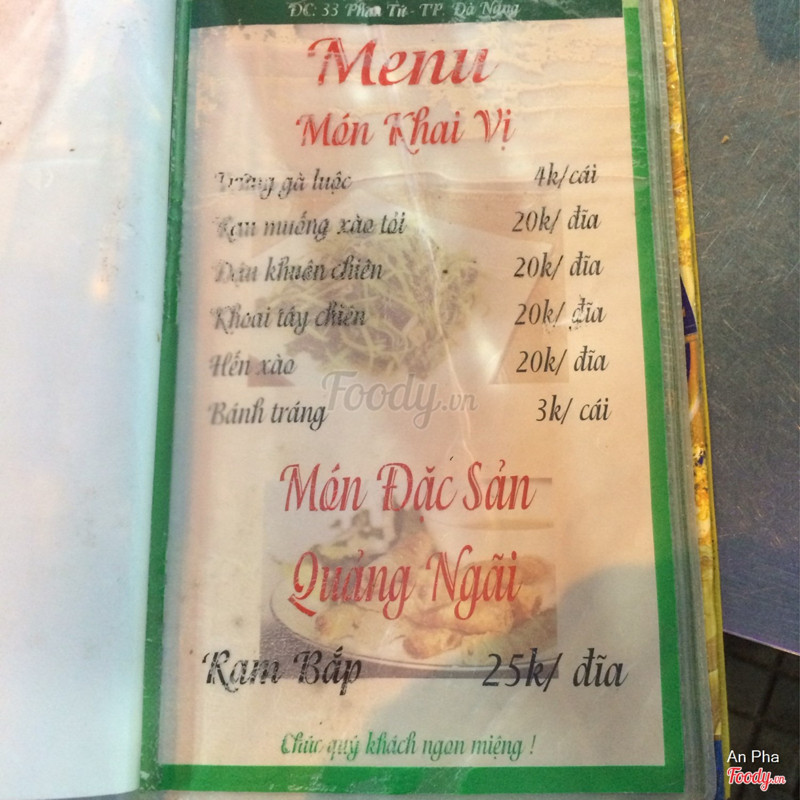 ĐC: 33 Phan Tứ - TP. Đà Nẵng
Menu
Món Khai Vị
Trứng gà luộc 4k/cái
Rau muống xào tỏi 20k/ đĩa
Đậu khuôn chiên 20k/ đĩa
Khoai tây chiên 20k/ đĩa
Hến xào 20k/ đĩa
Bánh tráng 3k/ cái
Foody.vn
Món Đặc Sản
Quảng Ngãi
Ram Bắp 25k/ đĩa
Chúc quý khách ngon miệng !
An Pha
Foody.vn